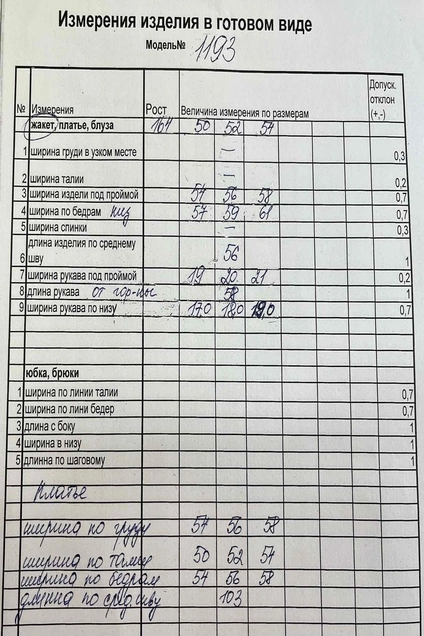 Измерения изделия в готовом виде
Модель№ 1193
№ Измерения Рост Величина измерения по размерам Допуск. отклон (+,-)
жакет, платье, блуза 164 50 52 54
1 ширина груди в узком месте — 0,3
2 ширина талии — 0,2
3 ширина издели под проймой 54 56 58 0,7
4 ширина по бедрам низ 57 59 61 0,7
5 ширина спинки — 0,3
длина изделия по среднему
6 шву 56 1
7 ширина рукава под проймой 19 20 21 0,2
8 длина рукава от гор-ны 58 1
9 ширина рукава по низу 17,0 18,0 19,0 0,7
юбка, брюки
1 ширина по линии талии 0,7
2 ширина по лини бедер 0,7
3 длина с боку 1
4 ширина в низу 1
5 длинна по шаговому 1
Платье
ширина по груди 54 56 58
ширина по талии 50 52 54
ширина по бедрам 54 56 58
длинна по сред. шву 103